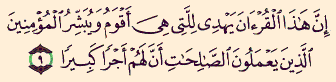 إِنَّ هَٰذَا ٱلْقُرْءَانَ يَهْدِى لِلَّتِى هِىَ أَقْوَمُ وَيُبَشِّرُ ٱلْمُؤْمِنِينَ
ٱلَّذِينَ يَعْمَلُونَ ٱلصَّٰلِحَٰتِ أَنَّ لَهُمْ أَجْرًا كَبِيرًا ٩